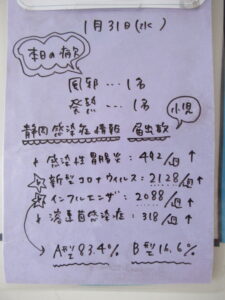 1月31日(水)
本日の欠
風邪…1名
発熱…1名
小児
静岡感染症情報 届出数
・感染性胃腸炎:492/週↑
☆新型コロナウィルス:2128/週↑
☆インフルエンザ:2088/週↑
・溶連菌感染症:318/週↑
A型83.4% B型16.6%